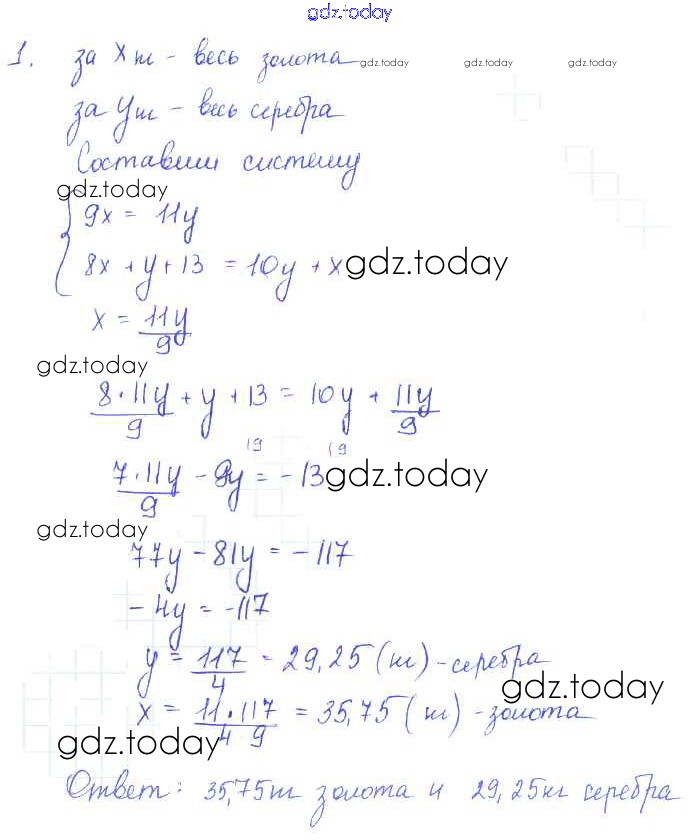 gdz.today
1. за x т - весь золота gdz.today gdz.today gdz.today
за y т - весь серебра
Составим систему
gdz.today
9x = 11y
8x + y + 13 = 10y + x gdz.today
x = 11y/9
gdz.today
8·11y/9 + y + 13 = 10y + 11y/9
|9 |9
7·11y/9 - 9y = -13 gdz.today
gdz.today
77y - 81y = -117
-4y = -117
y = 117/4 = 29,25 (т) - серебра
gdz.today
x = 11·117/4 9 = 35,75 (т) - золота
gdz.today
Ответ: 35,75т золота и 29,25кг серебра